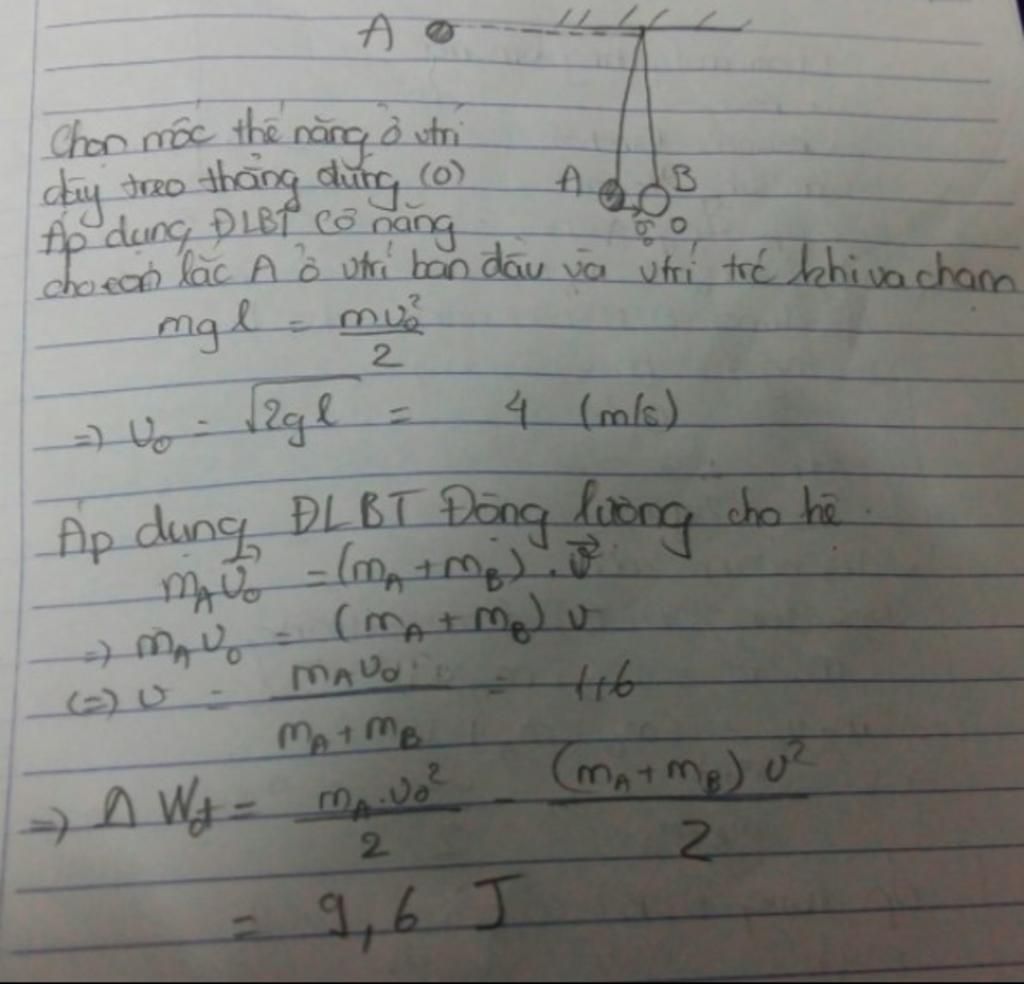 A
Chọn mốc thế năng ở vtrí
dây treo thẳng đứng (O)
A B
O
Áp dụng ĐLBT Cơ năng
cho con lắc A ở vtrí ban đầu và vtrí trc khi va chạm
mgl = mv₀²/2
=> v₀ = √2gl = 4 (m/s)
Áp dụng ĐLBT Động lượng cho hệ.
m_A v⃗₀ = (m_A + m_B).v⃗
=> m_A v₀ = (m_A + m_B) v
(=) v = m_A v₀ / m_A + m_B = 1,6
=> Δ W_đ = m_A.v₀²/2 - (m_A + m_B) v²/2
= 9,6 J